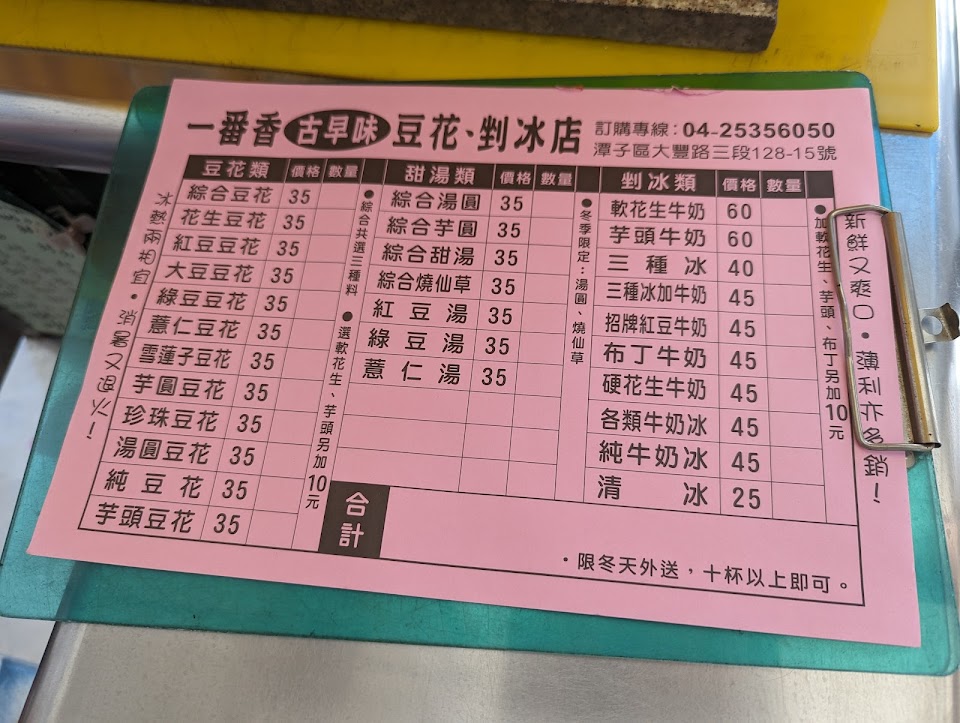 一番香 古早味 豆花、剉冰店
訂購專線：04-25356050
潭子區大豐路三段128-15號
冰熱兩相宜・消暑又退火！
豆花類 價格 數量
綜合豆花 35
花生豆花 35
紅豆豆花 35
大豆豆花 35
綠豆豆花 35
薏仁豆花 35
雪蓮子豆花 35
芋圓豆花 35
珍珠豆花 35
湯圓豆花 35
純豆花 35
芋頭豆花 35
●綜合共選三種料 ●選軟花生、芋頭另加10元
甜湯類 價格 數量
綜合湯圓 35
綜合芋圓 35
綜合甜湯 35
綜合燒仙草 35
紅豆湯 35
綠豆湯 35
薏仁湯 35
●冬季限定：湯圓、燒仙草
剉冰類 價格 數量
軟花生牛奶 60
芋頭牛奶 60
三種冰 40
三種冰加牛奶 45
招牌紅豆牛奶 45
布丁牛奶 45
硬花生牛奶 45
各類牛奶冰 45
純牛奶冰 45
清冰 25
●加軟花生、芋頭、布丁另加10元
新鮮又爽口・薄利亦多銷！
合計
・限冬天外送，十杯以上即可。